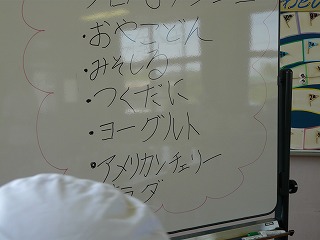 ・おやこどん
・みそしる
・つくだに
・ヨーグルト
・アメリカンチェリー